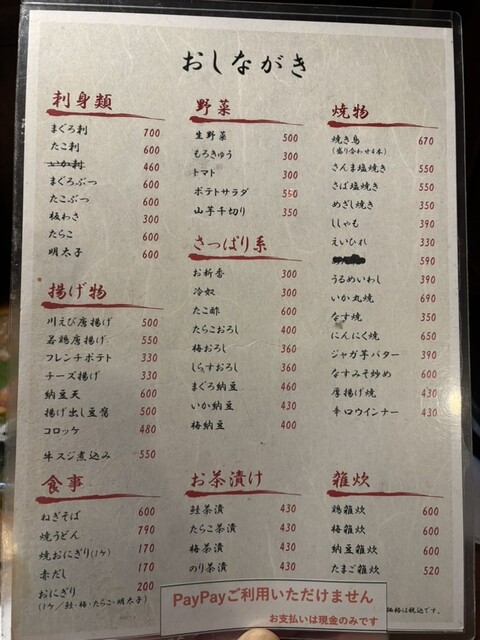 おしながき
刺身類
まぐろ刺 700
たこ刺 600
いか刺 460
まぐろぶつ 600
たこぶつ 600
板わさ 300
たらこ 600
明太子 600
揚げ物
川えび唐揚げ 500
若鶏唐揚げ 550
フレンチポテト 330
チーズ揚げ 330
納豆天 600
揚げ出し豆腐 500
コロッケ 480
牛スジ煮込み 550
食事
ねぎそば 600
焼うどん 790
焼おにぎり(1ケ) 170
赤だし 170
おにぎり 200
(1ケ/鮭・梅・たらこ・明太子)
野菜
生野菜 500
もろきゅう 300
トマト 300
ポテトサラダ 550
山芋千切り 350
さっぱり系
お新香 300
冷奴 300
たこ酢 600
たらこおろし 400
梅おろし 360
しらすおろし 360
まぐろ納豆 460
いか納豆 430
梅納豆 400
お茶漬け
鮭茶漬 430
たらこ茶漬 430
梅茶漬 430
のり茶漬 430
焼物
焼き鳥 670
(盛り合わせ4本)
さんま塩焼き 550
さば塩焼き 550
めざし焼き 350
ししゃも 390
えいひれ 330
590
うるめいわし 390
いか丸焼 690
なす焼 350
にんにく焼 650
ジャガ芋バター 390
なすみそ炒め 600
厚揚げ焼 430
辛口ウインナー 430
雑炊
鶏雑炊 600
梅雑炊 600
納豆雑炊 600
たまご雑炊 520
価格は税込です。
PayPayご利用いただけません
お支払いは現金のみです